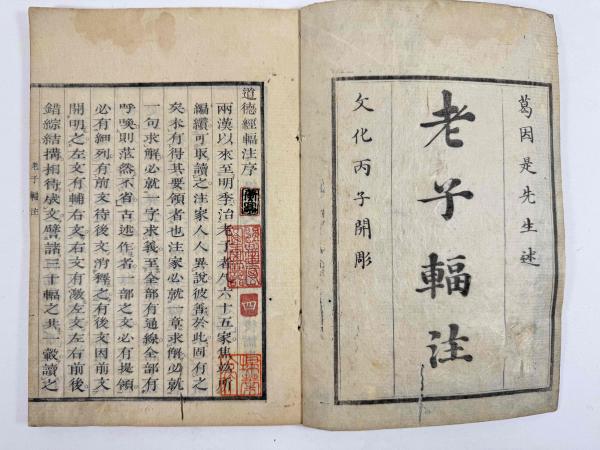 葛因是先生述
老子輻注
文化丙子開彫
道德經輻注序
兩漢以來至明季治老子者凡六十五家焦竑所
編纘可取讀之注家人人異說彼善於此固有之
矣未有得其要領者也注家必就一章求解必就
一句求解必就一字求義至全部有通線全部有
呼喚則茫然不省古述作者一部之文必有提領
必有細列有前文待後文消釋之有後文因前文
開明之左文有輔右文右文有激左文左右前後
錯綜結搆相待成文譬諸三十輻之共一轂讀之
老子輻注
四